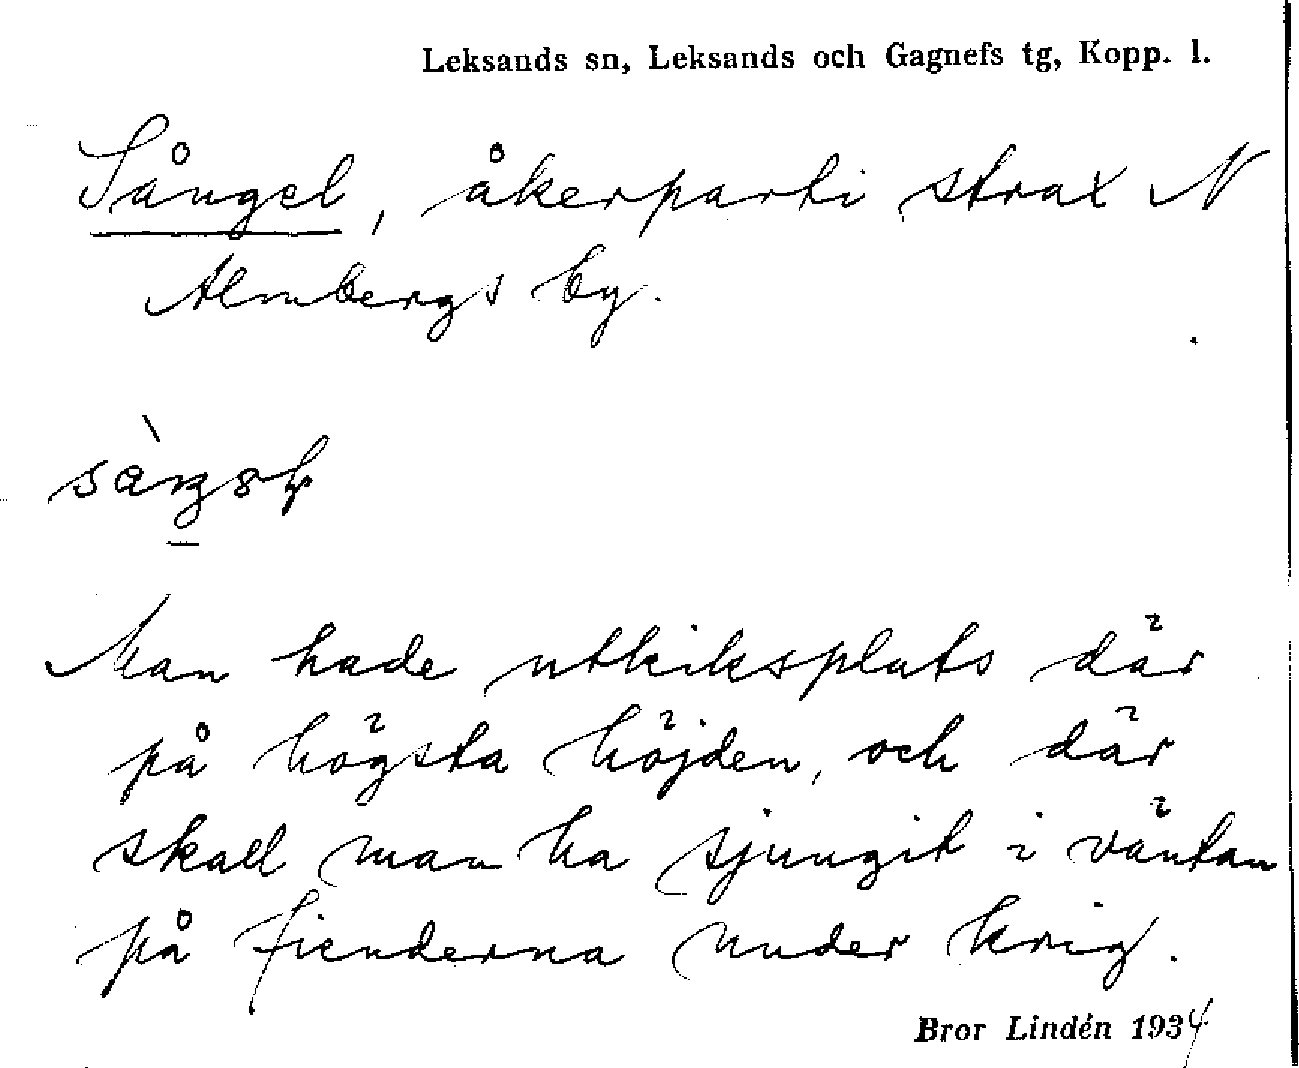 Leksands sn, Leksands och Gagnefs tg, Kopp. l.
Sångel, åkerparti strax N
Almbergs by.
Man hade utkiksplats där
på högsta höjden, och där
skall man ha sjungit i väntan
på fienderna under krig.
Bror Lindén 1934